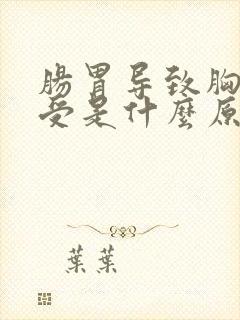 腸胃导致胸
受是什麼原
葉葉